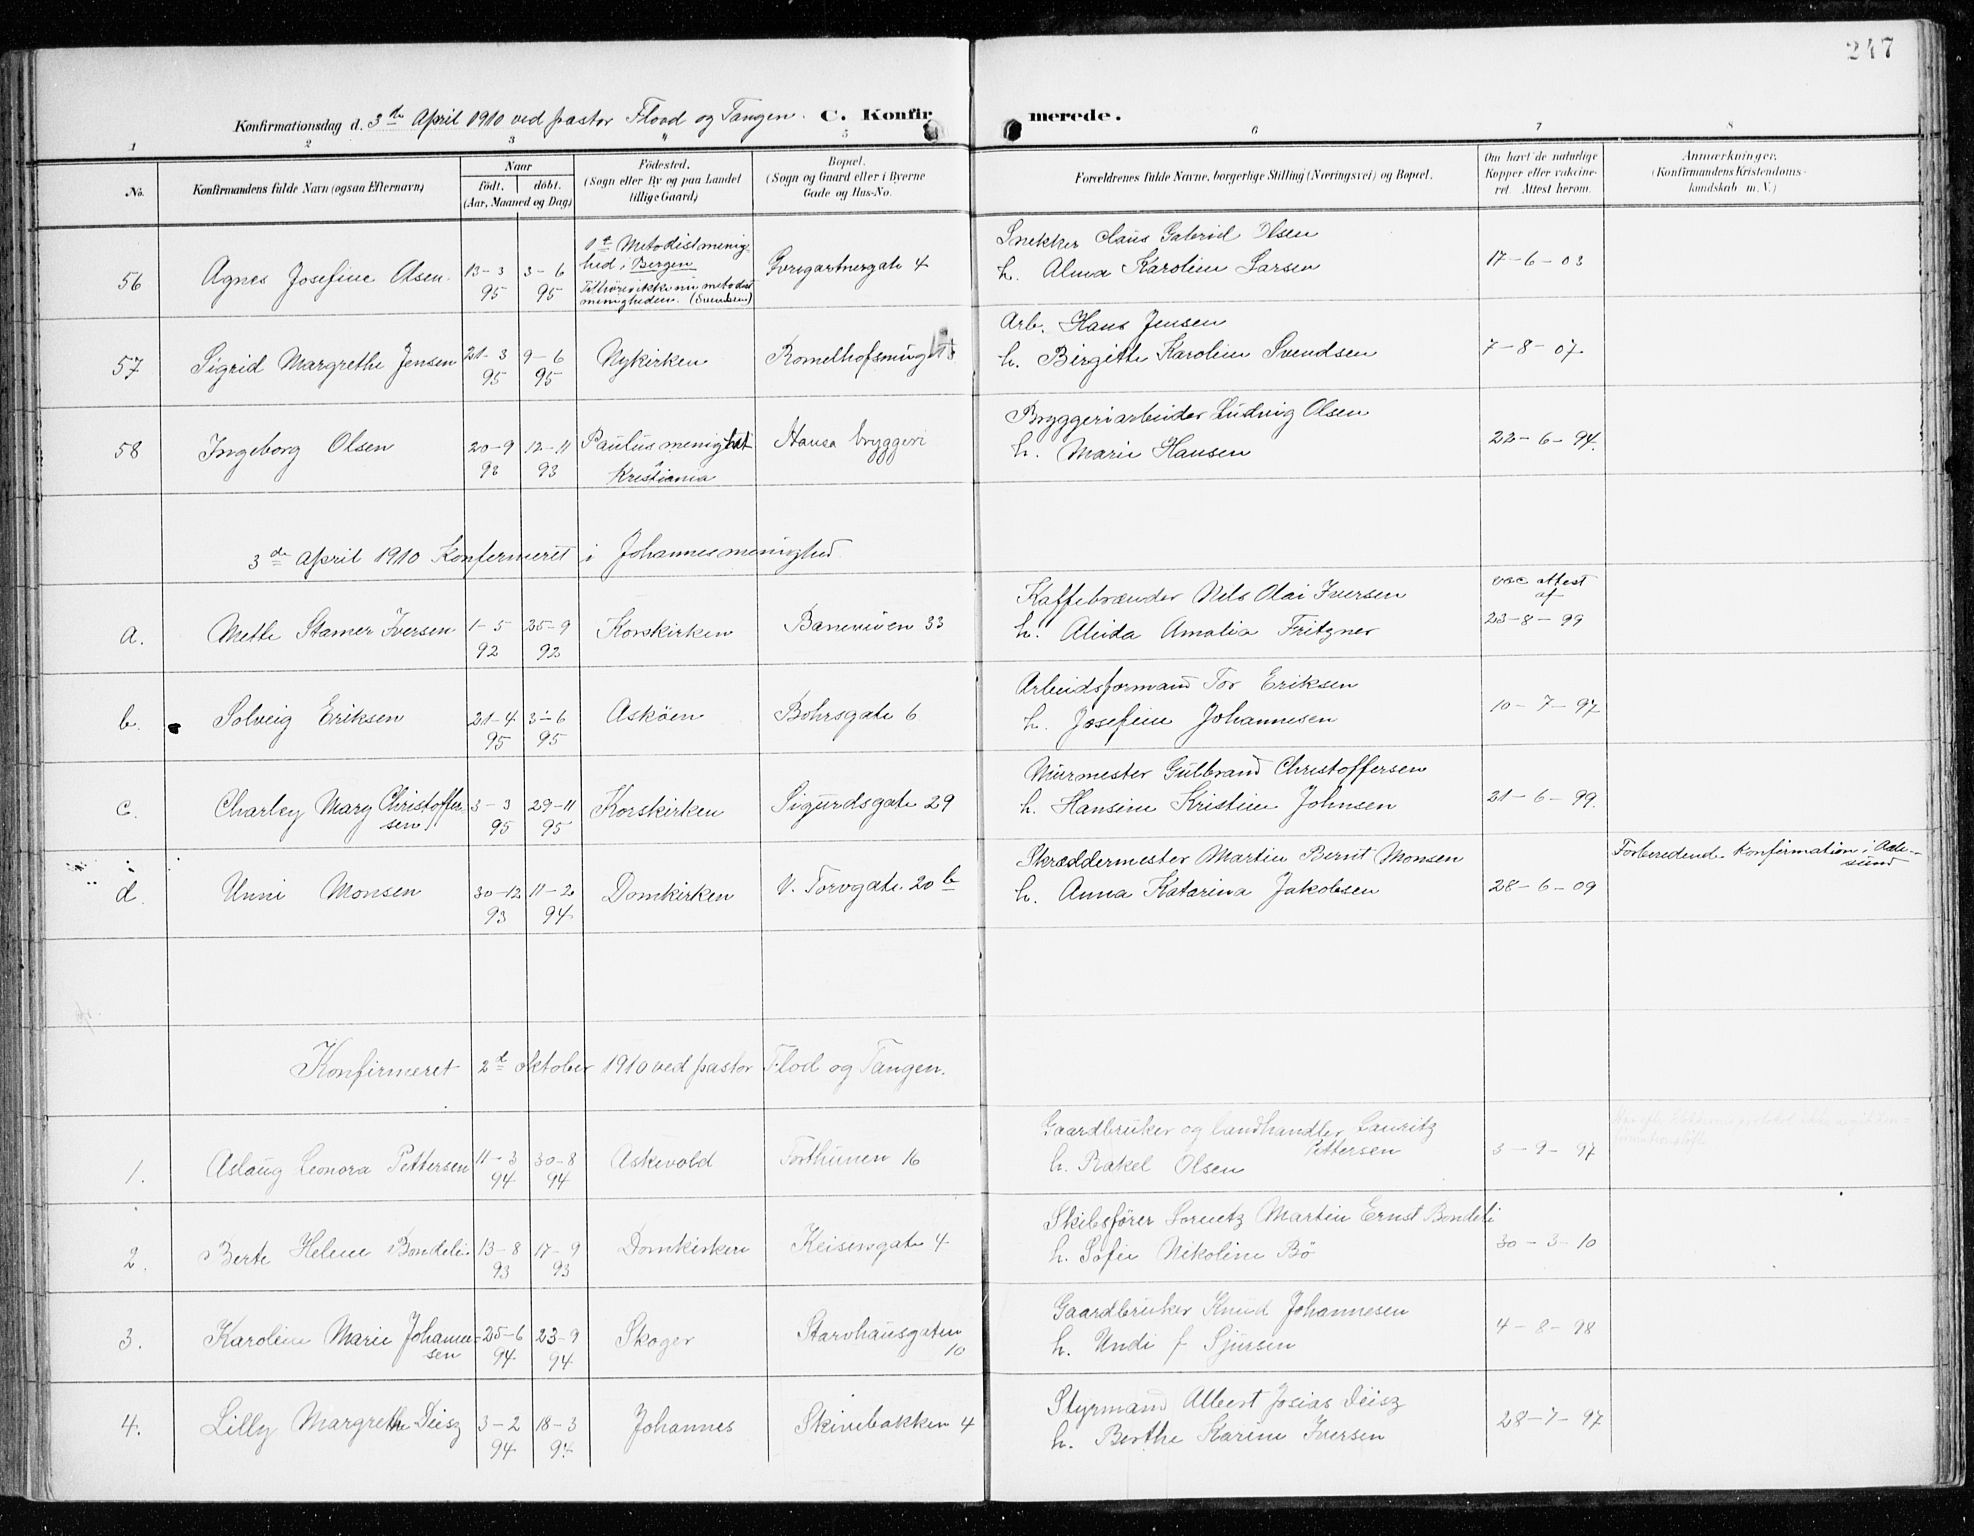 247
Konfirmationsdag d. 3de April 1910 ved pastor Flood og Tangen. C. Konfirmerede.
1 2 3 4 5 6 7 8
No.
Konfirmandens fulde Navn (ogsaa Efternavn)
Naar
født. døbt.
(Aar, Maaned og Dag)
Fødested.
(Sogn eller By og paa Landet
tillige Gaard)
Bopæl.
(Sogn og Gaard eller i Byerne
Gade og Hus-No.
Forældrenes fulde Navne, borgerlige Stilling (Næringsvei) og Bopæl.
Om havt de naturlige
Kopper eller vakcine-
ret. Attest herom.
Anmærkninger.
(Konfirmandens Kristendoms-
kundskab m. V.)
56 Agnes Josefine Olsen 13-3 95 3-6 95
1st Metodistmenig-
hed i Bergen
Tilhører ikke nu metodist
menigheden. (Svendsen)
Gartnergate 4
Snekker Claus Gabriel Olsen
h. Alma Karoline Larsen
17-6-03
57 Sigrid Margrethe Jensen 21-3 95 9-6 95 Nykirken
Arb. Hans Jensen
h. Birgitte Karoline Svendsen
7-8-07
58 Ingeborg Olsen 20-9 93 12-11 93
Paulus menighet
Kristiania
Hansa bryggeri
Bryggeriarbeider Ludvig Olsen
h. Marie Hansen
22-6-94.
3de April 1910 Konfermeret i Johannesmenighed
a. Mette Stamer Iversen 1-5 92 25-9 92 Korskirken
Kaffebrænder Nils Olai Iversen
h. Alida Amalia Fritzner
vac attest
af
23-8-99
b. Solveig Eriksen 21-4 95 3-6 95 Askøen Bohrsgate 6
Arbeidsformand Tor Eriksen
h. Josefine Johannesen
10-7-97
c. Charley Mary Christoffer-
sen
3-3 95 29-11 95 Korskirken Sigurdsgate 29
Murmester Gulbrand Christoffersen
h. Hansine Kristine Johnsen
21-6-99.
d. Unni Monsen 30-12 93 11-2 94 Domkirken V. Torvgate 20 b
Skræddermester Martin Bernt Monsen
h. Anna Katarina Jakobsen
28-6-09
Forberedende konfirmation i Aale-
sund
Konfirmeret 2d oktober 1910 ved pastor Flod og Tangen.
1. Aslaug Leonora Pettersen 11-3 94 30-8 94 Askevold Forthunen 16
Gaardbruker og landhandler Lauritz
Pettersen
h. Rakel Olsen
3-9-97
2. Berte Helene Bondeli 13-8 93 17-9 93 Domkirken
Skibsfører Lorentz Martin Ernst Bondeli
h. Sofie Nikoline Bø
30-3-10
3. Karoline Marie Johanne-
sen
25-6 94 23-9 94 Skoger
Starvhausgaten
10
Gaardbruker Knud Johannesen
h. Undi f Sjursen
4-8-98
4. Lilly Margrethe Deisz 3-2 94 18-3 94 Johannes Skivebakken 4
Styrmand Albert Josias Deisz
h. Berthe Karine Iversen
28-7-97